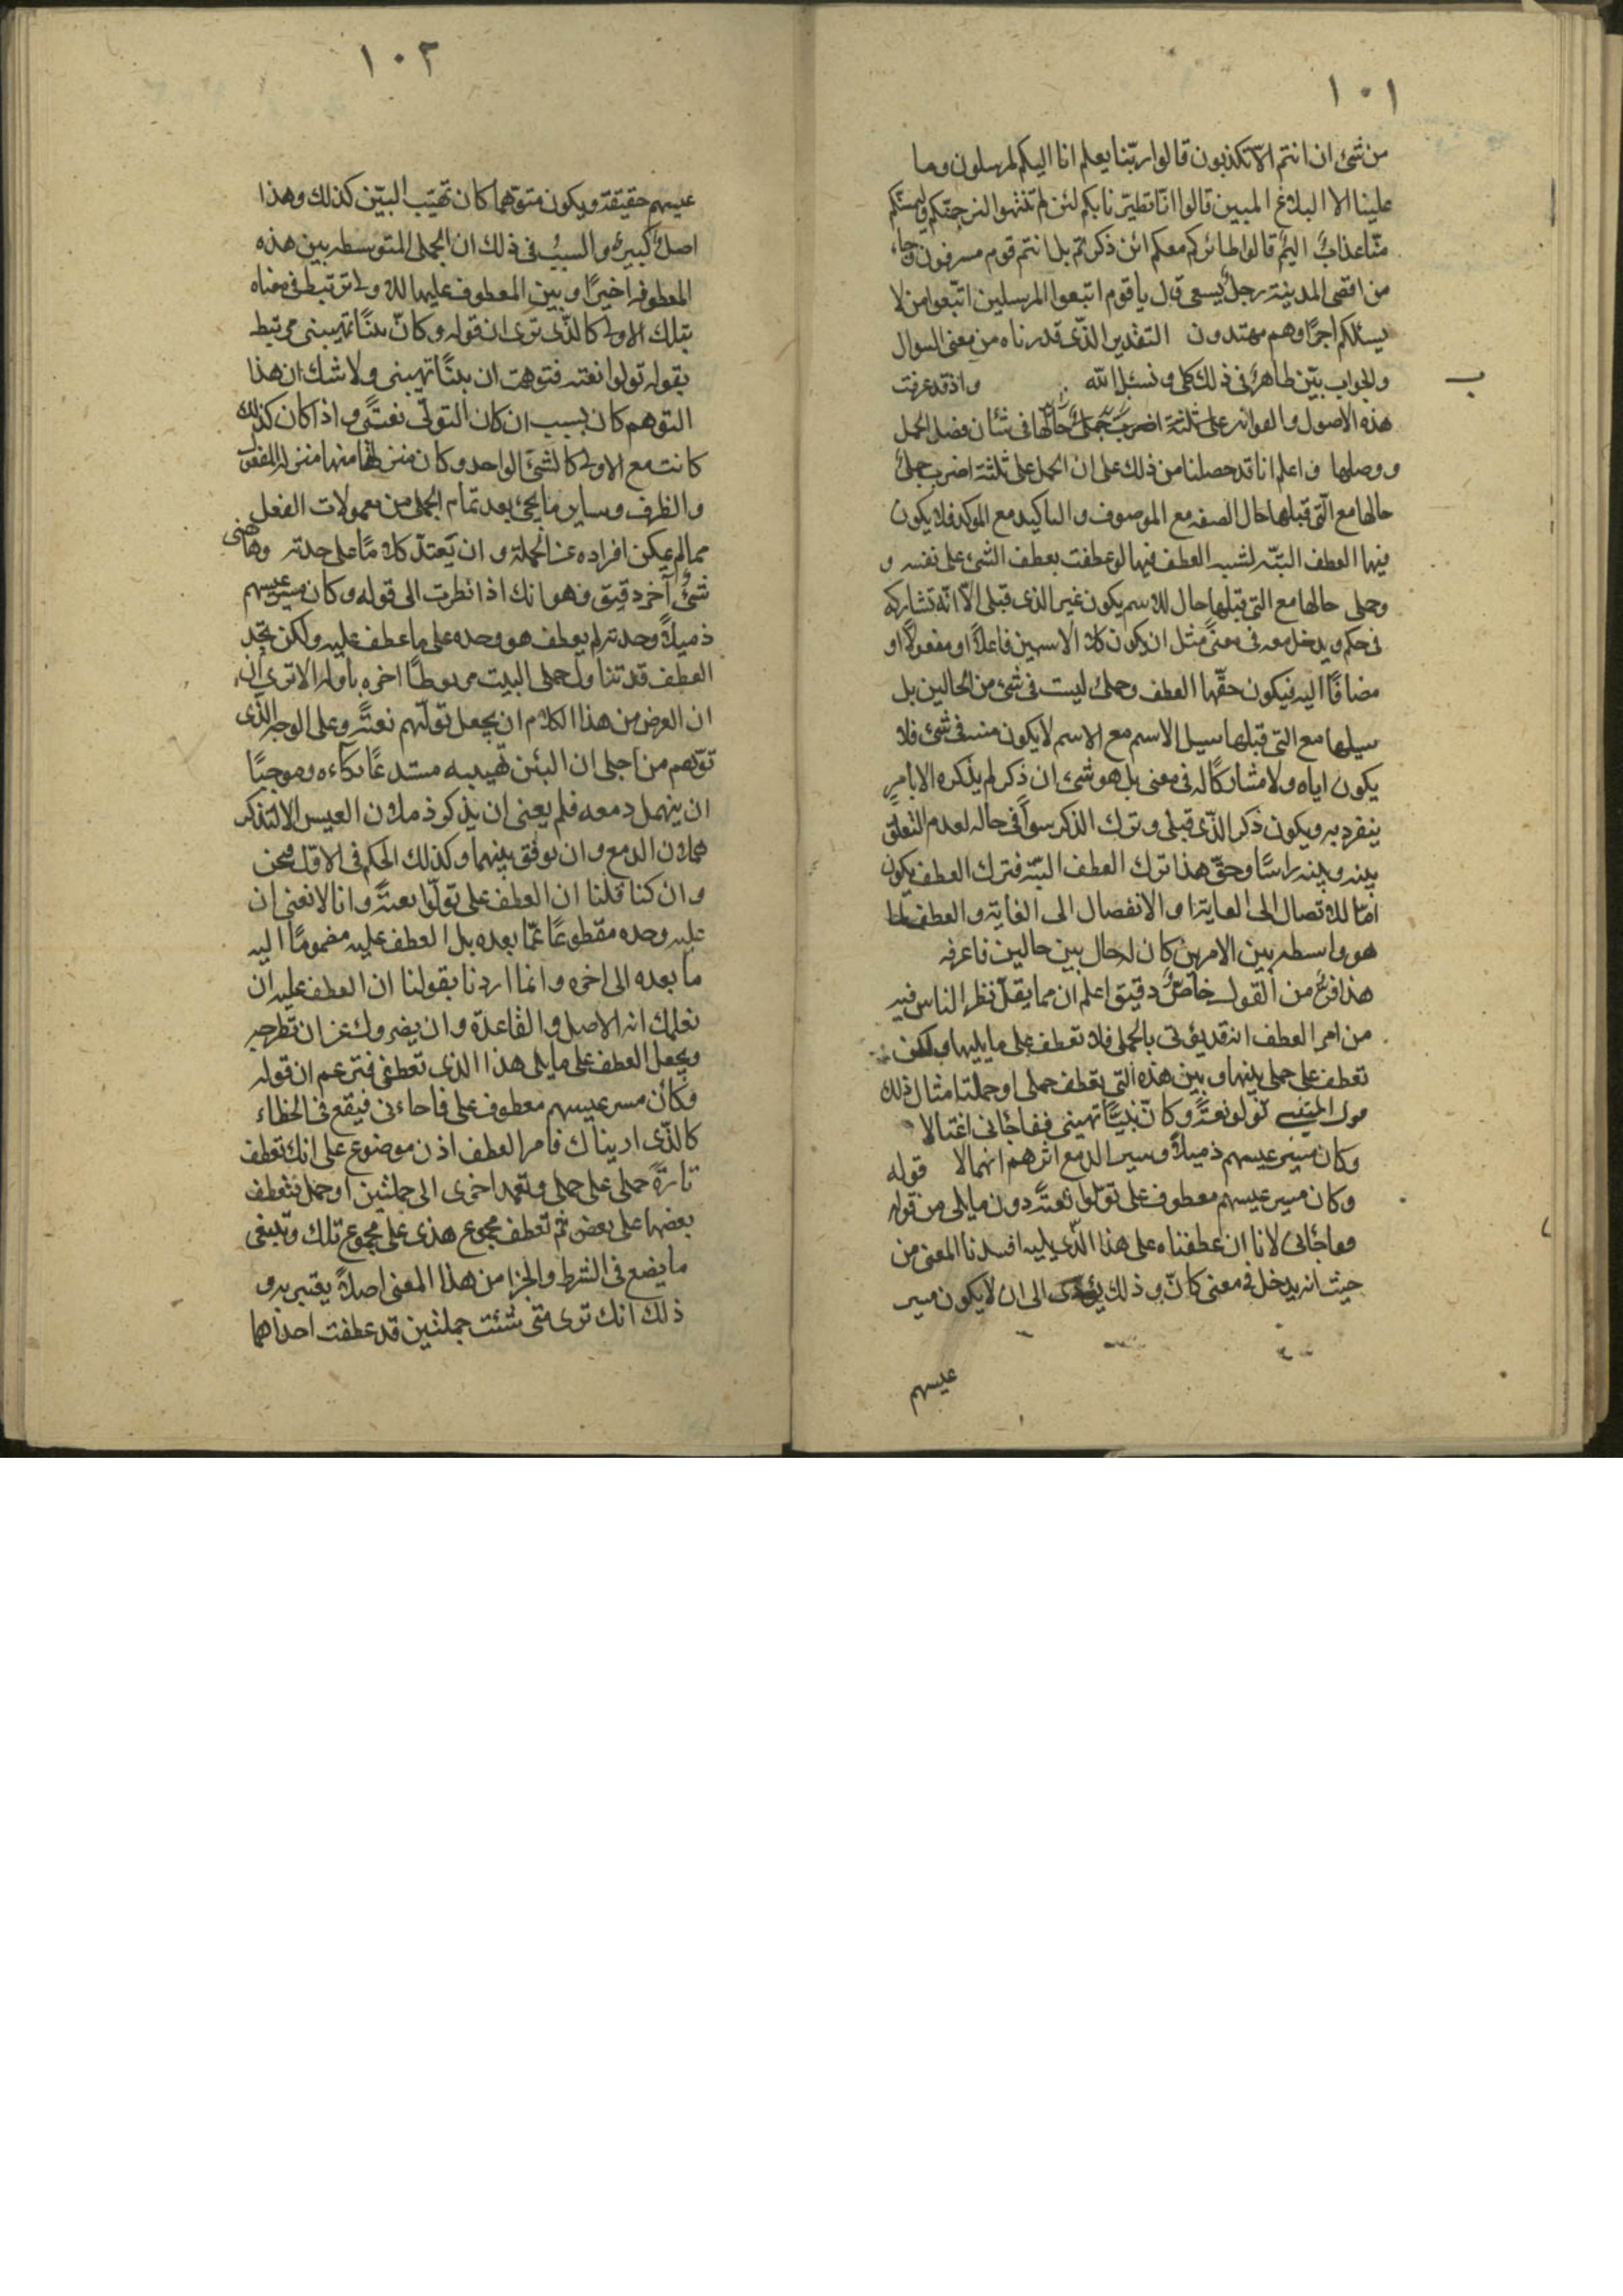 ١٠١
من شئ ان انتم الا تكذبون قالوا ربنا يعلم انا اليكم لمرسلون وما
علينا الا البلاغ المبين قالوا انا تطيرنا بكم لئن لم تنتهوا لنرجمنكم وليمسنكم
منّا عذابٌ اليمٌ قالوا طائركم معكم ائن ذكرتم بل انتم قوم مسرفون وجاء
من اقصى المدينة رجلٌ يسعى قال يا قوم اتبعوا المرسلين اتبعوا من لا
يسئلكم اجرًا وهم مهتدون التقدير الذى قدرناه من معنى السوال
والجواب بيّن ظاهرٌ فى ذلك كله ونسئل الله واذ قد عرفت
هذه الاصول والقوانين على ثلثة اضرب جملٌ حالها فى شأن فصل الجمل
ووصلها فاعلم انا قد حصلنا من ذلك على ان الجمل على ثلثة اضرب جملة
حالها مع التى قبلها حال الصفه مع الموصوف والتاكيد مع الموكد فلا يكون
فيها العطف البتّه لشبه العطف فيها لو عطفت بعطف الشئ على نفسه و
وجمله حالها مع التى قبلها حال للاسم يكون غير الذى قبله الّا انّه تشاركه
فى حكم ويدخل معه فى معنىً مثل ان يكون كلا الاسمين فاعلاً او مفعولاً او
مضافًا اليه فيكون حقّها العطف وجملة ليست فى شئ من الحالين بل
سبيلها مع التى قبلها سبيل الاسم مع الاسم لا يكون منه فى شئ فلا
يكون اياه ولا مشاركًا له فى معنى بل هو شئ ان ذكر لم يذكره الا بامرٍ
ينفرد به ويكون ذكر الذّى قبله وترك الذكر سواً فى حاله لعدم التعلق
بينه وبينه راسًا وحقّ هذا ترك العطف البته فترك العطف يكون
امّا للاتصال الى الغاية او الانفصال الى الغاية والعطف لما
هو واسطه بين الامرين كان له حال بين حالين فاعرفه
هذا فرعٌ من القول خاصٌ دقيق اعلم ان مما يقلّ نظر الناس فيه
من امر العطف انه قد يؤتى بالجمله فلا تعطف على ما يليها ولكن
تعطف على جمله بينها وبين هذه التى تعطف جمله او جملتا مثال ذلك
قول المتنبى تولو بغتةً وكانّ بيناً تهيبنى ففاجأنى اغتيالا
وكان مسير عيسهم ذميلاً وسير الدمع اثرهم انهمالا قوله
وكان مسير عيسهم معطوف على تولوا بغتةً دون ما يلى من قوله
ففاجأنى لانا ان عطفناه على هذا الذّى يليه افسدنا المعنى من
حيث انه يدخل فى معنى كانّ وذلك يؤدى الى ان لا يكون مسير
عيسهم
١٠٢
عيسهم حقيقة ويكون متوهما كان تهيّب البيّن كذلك وهذا
اصلٌ كبيرٌ والسببُ فى ذلك ان الجمله المتوسطه بين هذه
المعطوفه اخيرًا وبين المعطوف عليها الاولى ترتبط فى معناه
بتلك الاولى كالذّى ترى ان قوله وكانّ بينًا تهيبنى مرتبط
بقوله تولوا بغته فتوهمت ان بينًا تهيبنى ولا شك ان هذا
التوهم كان بسبب ان كان التولّى بغتةً واذا كان كذلك
كانت مع الاولى كالشئ الواحد وكان منزلتها منها منزله المفعول
والظرف وساير ما يجئ بعد تمام الجمله من معمولات الفعل
مما لم يمكن افراده عن الجملة وان يعتدّ كلامًا على حدته وهاهنى
شئٌ آخر دقيق وهو انك اذا نظرت الى قوله وكان مسير عيسهم
ذميلاً وجدته لم يعطف هو وحده على ما عطف عليه ولكن تجد
العطف قد تناول جمله البيت مربوطًا اخره باوله الا ترى ان
ان الغرض من هذا الكلام ان يجعل تولّيهم بغتةً وعلى الوجه الذى
توهّم من اجله ان البين تهيبه مستدعًا بكاءه وموجبًا
ان ينهمل دمعه فلم يعنى ان يذكر ذملان العيس الا لتذكر
هملان الدمع وان يوفق بينهما وكذلك الحكم فى الاول فنحن
وان كنا قلنا ان العطف على تولّوا بغتةً وانا لا نعنى ان
عليه وحده مقطوعًا عمّا بعده بل العطف عليه مضمومًا اليه
ما بعده الى اخره وانما اردنا بقولنا ان العطف عليه ان
نعلمك انه الاصل والقاعدة وان يضروك عن ان تطرحه
ويجعل العطف على ما يلى هذا الذى تعطفى فتزعم ان قوله
وكأن مسير عيسهم معطوف على فاجاءنى فيقع فى الخطاء
كالذّى اريناك فامر العطف اذن موضوع على انك تعطف
تارةً جمله على جمله وتعمد اخرى الى جملتين او جمل فتعطف
بعضها على بعض ثم تعطف مجموع هذى على مجموع تلك وينبغى
ما يضع فى الشرط والجزا من هذا المعنى اصلاً يعتبر به و
ذلك انك ترى متى شئت جملتين قد عطفت احداهما